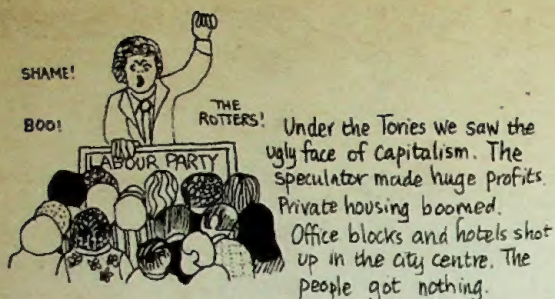 SHAME!
BOO!
THE
ROTTERS!
LABOUR PARTY
Under the Tories we saw the
ugly face of Capitalism. The
speculator made huge profits.
Private housing boomed.
Office blocks and hotels shot
up in the city centre. The
people got nothing.